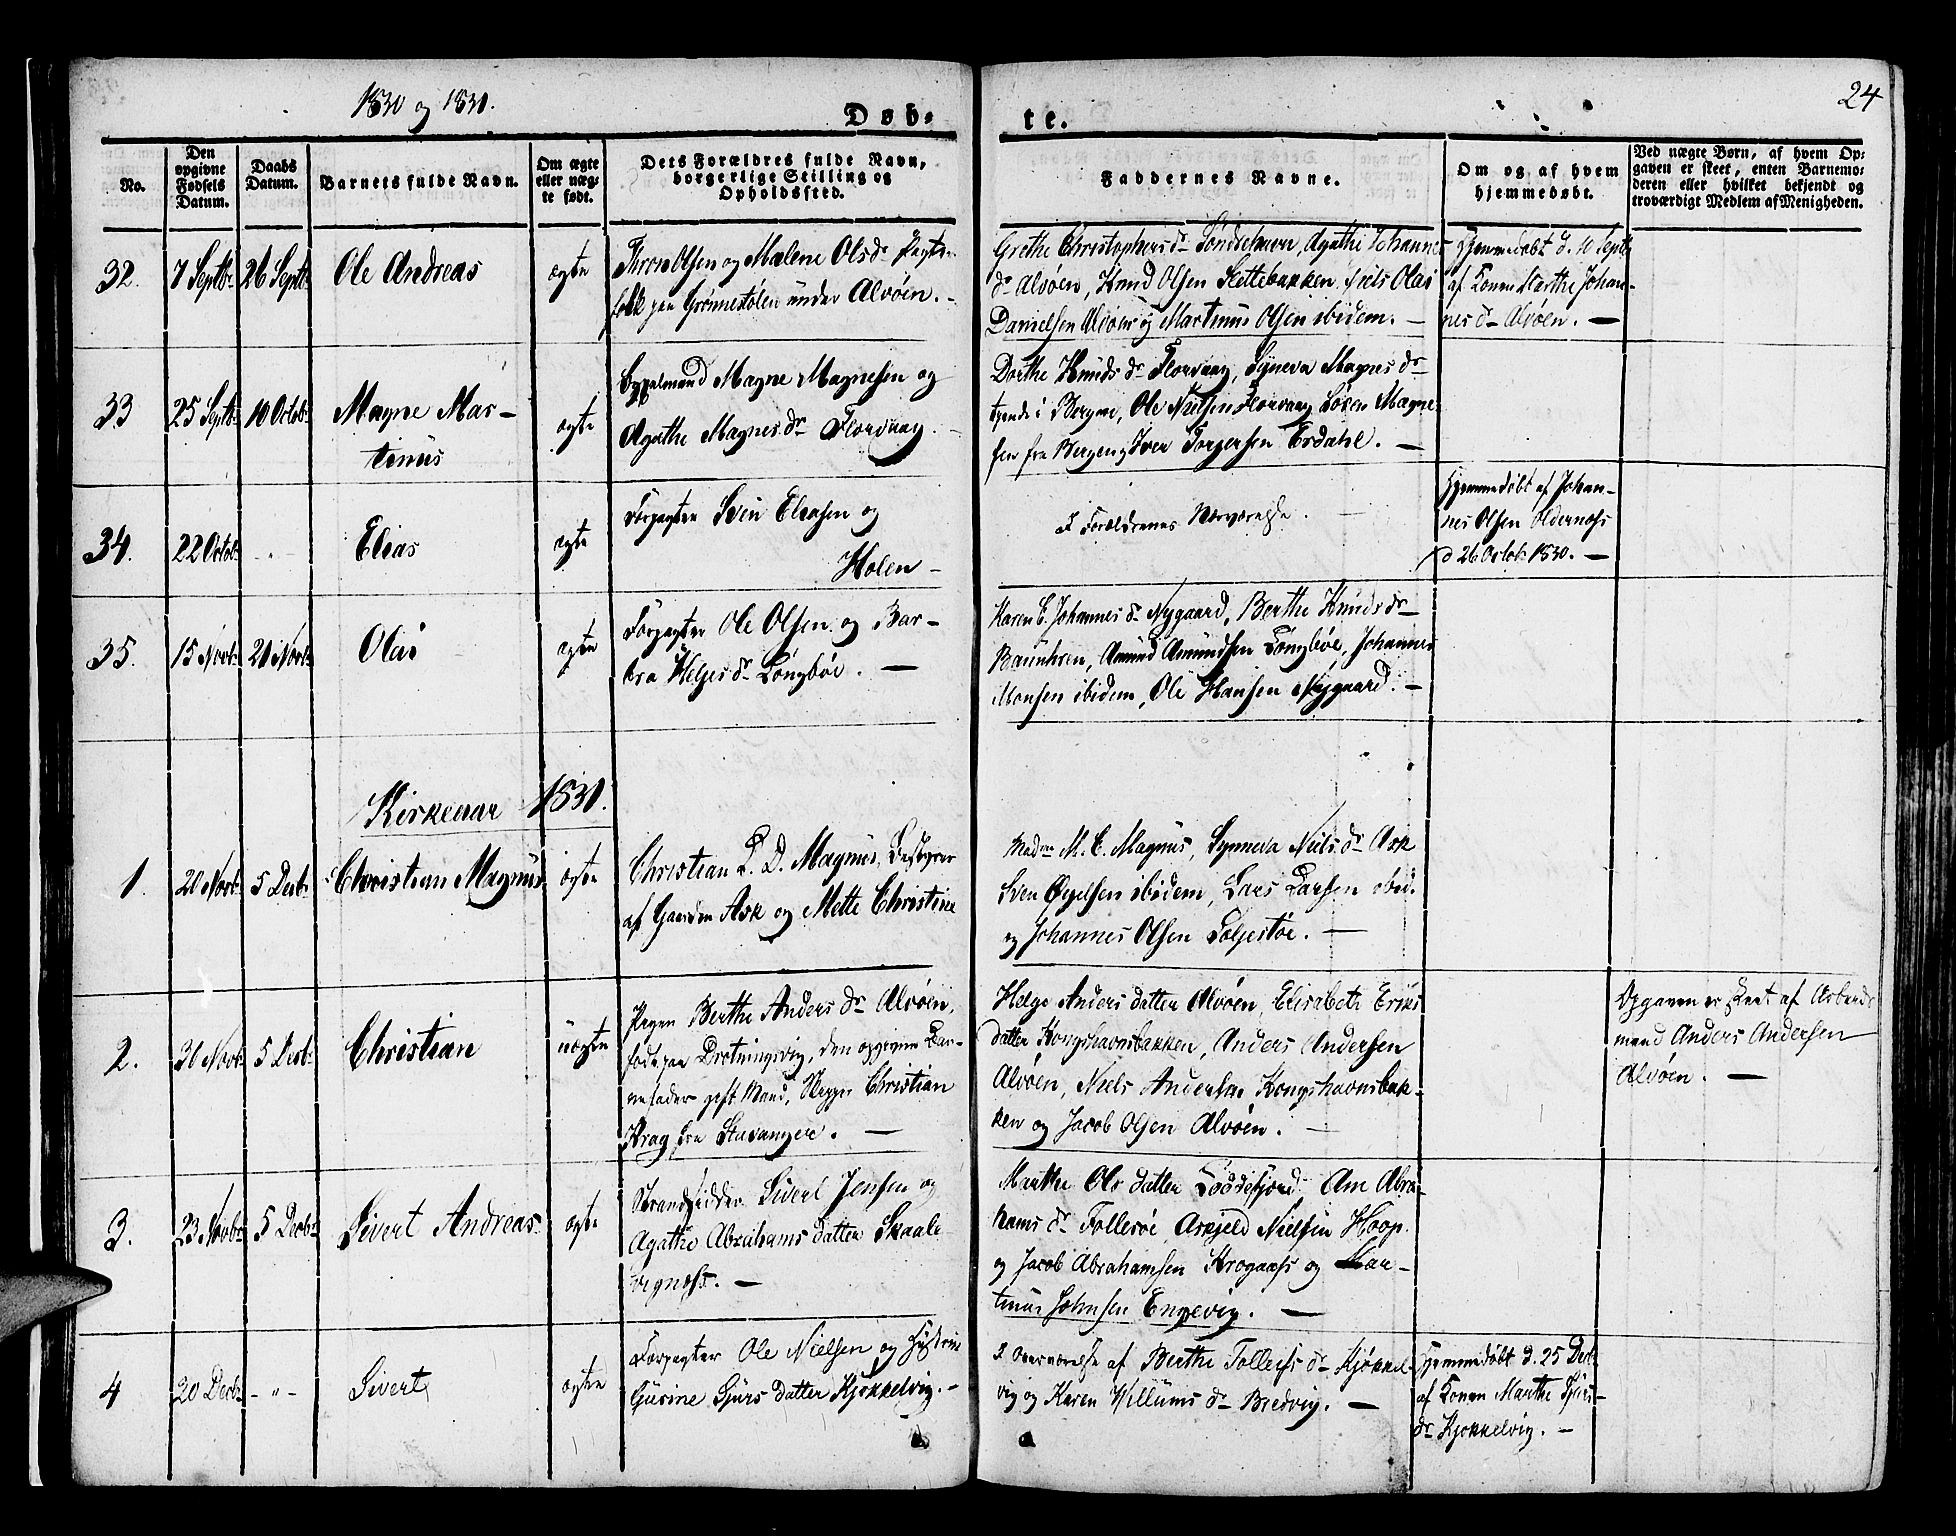 1830 og 1831.
Døb-
te.
24
No.
Den opgivne Fødsels Datum.
Daabs Datum.
Barnets fulde Navn.
Om ægte eller næg- te født.
Dets Forældres fulde Navn, borgerlige Stilling og Opholdssted.
Faddernes Navne.
Om og af hvem hjemmedøbt.
Ved uægte Børn, af hvem Op-
gaven er skeet, enten Barnemo-
deren eller hvilket bekjendt og
troværdigt Medlem af Menigheden.
32.
7 Septb:
26 Septb:
Ole Andreas
ægte
Thron Olsen og Malene Olsdr
folk paa Grønnestølen under Alvøen.
Grethe Christophersdr Sondrehavn, Agathe Johannes
dr Alvøen, Knud Olsen Slettebakken, Niels Olai
Danielsen Alvøen og Martinus Olsen ibidem. —
Hjemmedøbt d. 10 Septb
af Konen Marthe Johan-
nes dr Alvøen. —
33
25 Septb:
10 Octob:
Magne Mar-
tinus
ægte
Magne Magnesen og
Agathe Magnesdr Florvaag.
Dorthe Knudsdr Florvaag, Synneva Magnesdr
tjende i Bergen, Ole Nielsen Florvaag Magne-
sen fra Bergen og Iver Torgersen Erdahl. —
34.
22 Octob:
Elias
ægte
Forpagter Sven Eliasen og
Holen —
I Forældrenes Nærværelse. —
Hjemmedøbt af Johan-
nes Olsen Oldernæss
d 26 Octob: 1830. —
35.
15 Novb:
21 Novb:
Olai
ægte
Forpagter Ole Olsen og Bar-
bra Helgesdr Lyngbøe. —
Karen E. Johannesdr Nygaard, Berthe Knudsdr
Amund Amundsen Lyngbøe, Johannes
Monsen ibidem, Ole Hansen Nygaard. —
Kirkeaar 1831.
1.
20 Novb:
5 Decb:
Christian Magnus
ægte
Christian D. Magnus, Bestyrer
af Gaarden Ask og Mette Christine
Madme M. C. Magnus, Synneva Nielsdr Ask
Sven ibidem, Lars Larsen ibid.
og Johannes Olsen Følgestøe. —
2.
30 Novb:
5 Decb:
Christian
uægte
Pigen Berthe Andersdr Alvøen,
født paa Drotningsvig, den opgivne Bar-
nefader gift Mand, Skipper Christian
Krag fra Stavanger. —
Helge Anders datter Alvøen, Elisabeth Eriks
datter Kongshavnsbakken, Anders Andersen
Alvøen, Niels Andersen Kongshavnsbak-
ken og Jacob Olsen Alvøen. —
Opgaven er skeet af Arbeids
mand Anders Andersen
Alvøen. —
3.
23 Novb:
5 Decb:
Sivert Andreas
ægte
Strandsidder Sivert Jensen og
Agathe Abrahams datter Skaale
vignæss. —
Marthe Ols datter Loddefjord, Ane Abra-
hams dr Follesøe, Askjeld Nielsen Hoop
og Jacob Abrahamsen Krogaass og Mar-
tinus Johnsen Engevig. —
4
20 Decb:
- " -
Sivert
ægte
Forpagter Ole Nielsen og
Gurine Sjurs datter Kjøkkelvig. —
I Overværelse af Berthe Tollefs dr Kjøkkel-
vig og Karen Willums dr Bredvig. —
Hjemmedøbt d. 25 Decb:
af Konen Marthe Sjurs-
dr Kjøkkelvig. —